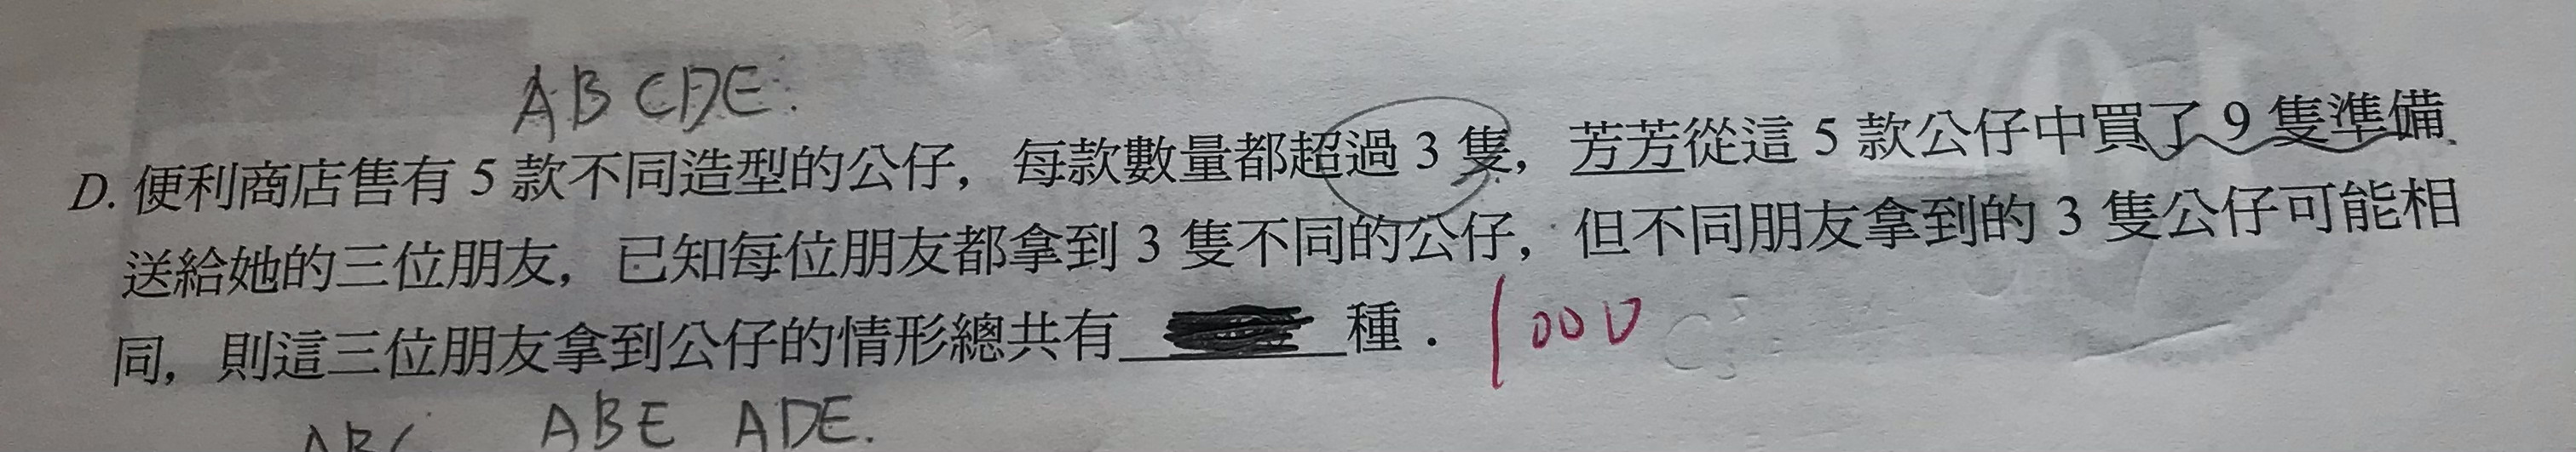 ABCDE.
D. 便利商店售有 5 款不同造型的公仔，每款數量都超過 3 隻，芳芳從這 5 款公仔中買了 9 隻準備
送給她的三位朋友，已知每位朋友都拿到 3 隻不同的公仔，但不同朋友拿到的 3 隻公仔可能相
同，則這三位朋友拿到公仔的情形總共有______種． 1000
ABC ABE ADE.